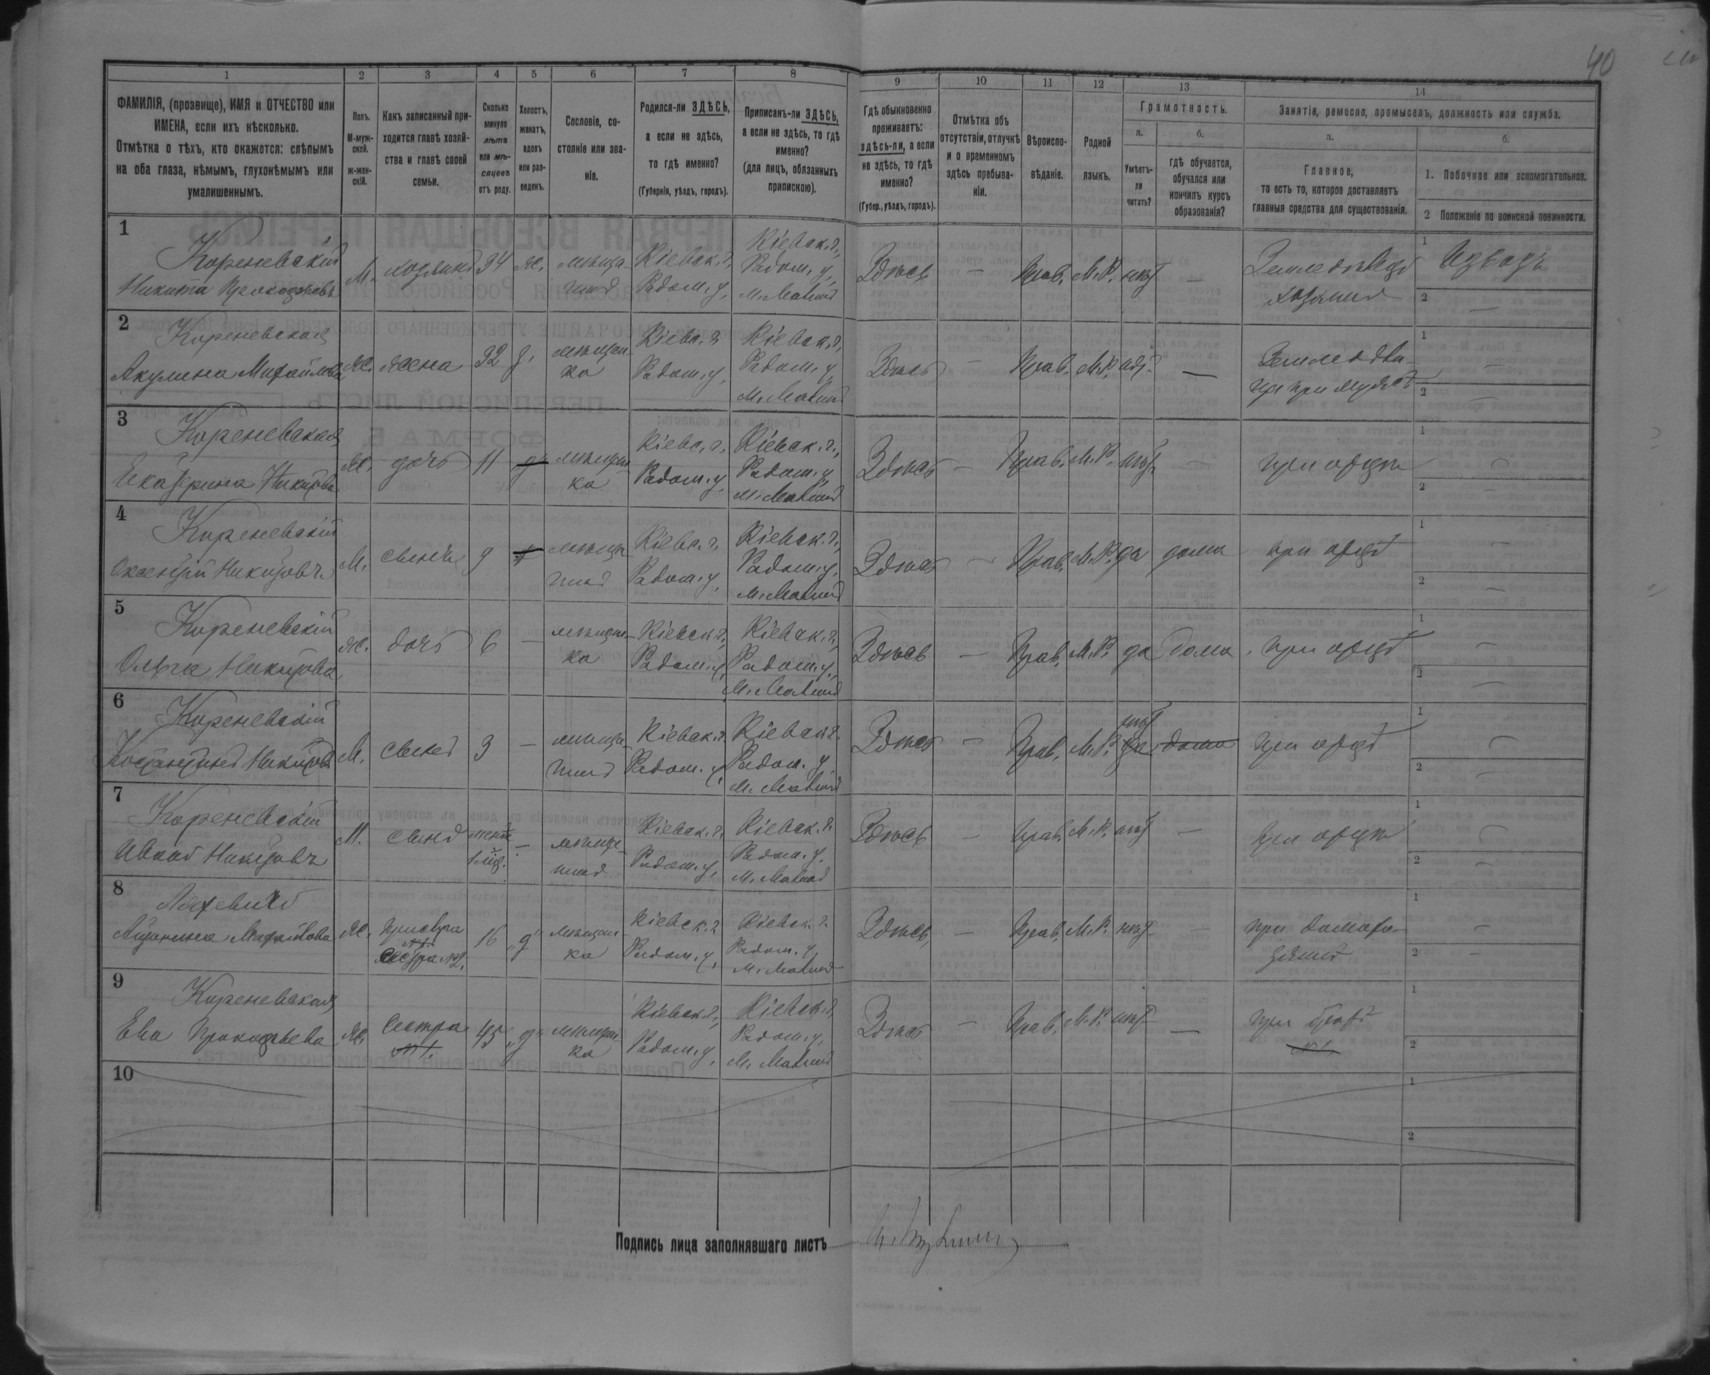 40
1 2 3 4 5 6 7 8 9 10 11 12 13 14
ФАМИЛІЯ, (прозвище), ИМЯ и ОТЧЕСТВО или
ИМЕНА, если ихъ нѣсколько.
Отмѣтка о тѣхъ, кто окажется: слѣпымъ
на оба глаза, нѣмымъ, глухонѣмымъ или
умалишеннымъ.
Полъ.
М-муж-
ской.
ж-жен-
скій.
Какъ записанный при-
ходится главѣ хозяй-
ства и главѣ своей
семьи.
Сколько
минуло
лѣтъ
или мѣ-
сяцевъ
отъ роду.
Холостъ,
женатъ,
вдовъ
или раз-
веденъ.
Сословіе, со-
стояніе или зва-
ніе.
Родился-ли ЗДѢСЬ,
а если не здѣсь,
то гдѣ именно?
(Губернія, уѣздъ, городъ).
Приписанъ-ли ЗДѢСЬ,
а если не здѣсь, то гдѣ
именно?
(для лицъ, обязанныхъ
припискою).
Гдѣ обыкновенно
проживаетъ:
здѣсь-ли, а если
не здѣсь, то гдѣ
именно?
(Губер., уѣздъ, городъ).
Отмѣтка объ
отсутствіи, отлучкѣ
и о временномъ
здѣсь пребыва-
ніи.
Вѣроиспо-
вѣданіе.
Родной
языкъ.
Грамотность.
а.
Умѣетъ-
ли
читать?
б.
гдѣ обучается,
обучался или
кончилъ курсъ
образованія?
Занятіе, ремесло, промыселъ, должность или служба.
а.
Главное,
то есть то, которое доставляетъ
главныя средства для существованія.
б.
1. Побочное или вспомогательное.
2 Положеніе по воинской повинности.
1
Кореневскій
Никита Прокофьевъ
М. хозяинъ 34 ж. мѣща-
нинъ
Кіевск. г.,
Радом. у.
Кіевск. г.,
Радом. у.
м. Малинъ
Здѣсь — Прав. М.Р. нѣт —
Земледѣлецъ
хозяинъ
1 Извозъ
2 —
2
Кореневская
Акулина Михайлова
ж. жена 32 з. мѣщан-
ка
Кіевс. г.
Радом. у.
Кіевск. г.,
Радом. у.
м. Малинъ
Здѣсь — Прав. М.Р. нѣт —
при мужѣ
1 —
2 —
3
Кореневская
Екатерина Никитова
ж. дочь 11 мѣщан-
ка
Кіевс. г.,
Радом. у.
Кіевск. г.,
Радом. у.
м. Малинъ
Здѣсь — Прав. М.Р. нѣт —
при отцѣ
1 —
2
4
Кореневскій
Никитовъ
М. сынъ 9 мѣща-
нинъ
Кіевс. г.
Радом. у.
Кіевск. г.,
Радом. у.
м. Малинъ
Здѣсь — Прав. М.Р. да дома
при отцѣ
1 —
2 —
5
Кореневскій
Ольга Никитова
ж. дочь 6 — мѣщан-
ка
Кіевск. г.,
Радом. у.
Кіевск. г.,
Радом. у.
м. Малинъ
Здѣсь — Прав. М.Р. да дома
при отцѣ
1 —
2
6
Кореневскій
Константинъ Никитовъ
М. сынъ 3 — мѣща-
нинъ
Кіевск. г.
Радом. у.
Кіевск. г.
Радом. у.
м. Малинъ
Здѣсь — Прав. М.Р. нѣт
да дома
при отцѣ
1 —
2
7
Кореневскій
Иванъ Никитовъ
М. сынъ менѣе
1 мѣс. — мѣща-
нинъ
Кіевск. г.
Радом. у.
Кіевск. г.
Радом. у.
м. Малинъ
Здѣсь — Прав. М.Р. нѣт —
при отцѣ
1 —
2
8
Михайлова
ж. 16 "д" мѣщан-
ка
сестра №2.
Кіевск. г.
Радом. у.
Кіевск. г.
Радом. у.
м. Малинъ
Здѣсь — Прав. М.Р. нѣт —
при
1 —
2 —
9
Кореневская
Ева Прокофьева
ж. сестра
№1.
45 "д" мѣщан-
ка
Кіевск. г.,
Радом. у.
Кіевск. г.
Радом. у.
м. Малинъ
Здѣсь — Прав. М.Р. нѣт —
при братѣ
№1
1
2
10
1
2
Подпись лица заполнявшаго листъ